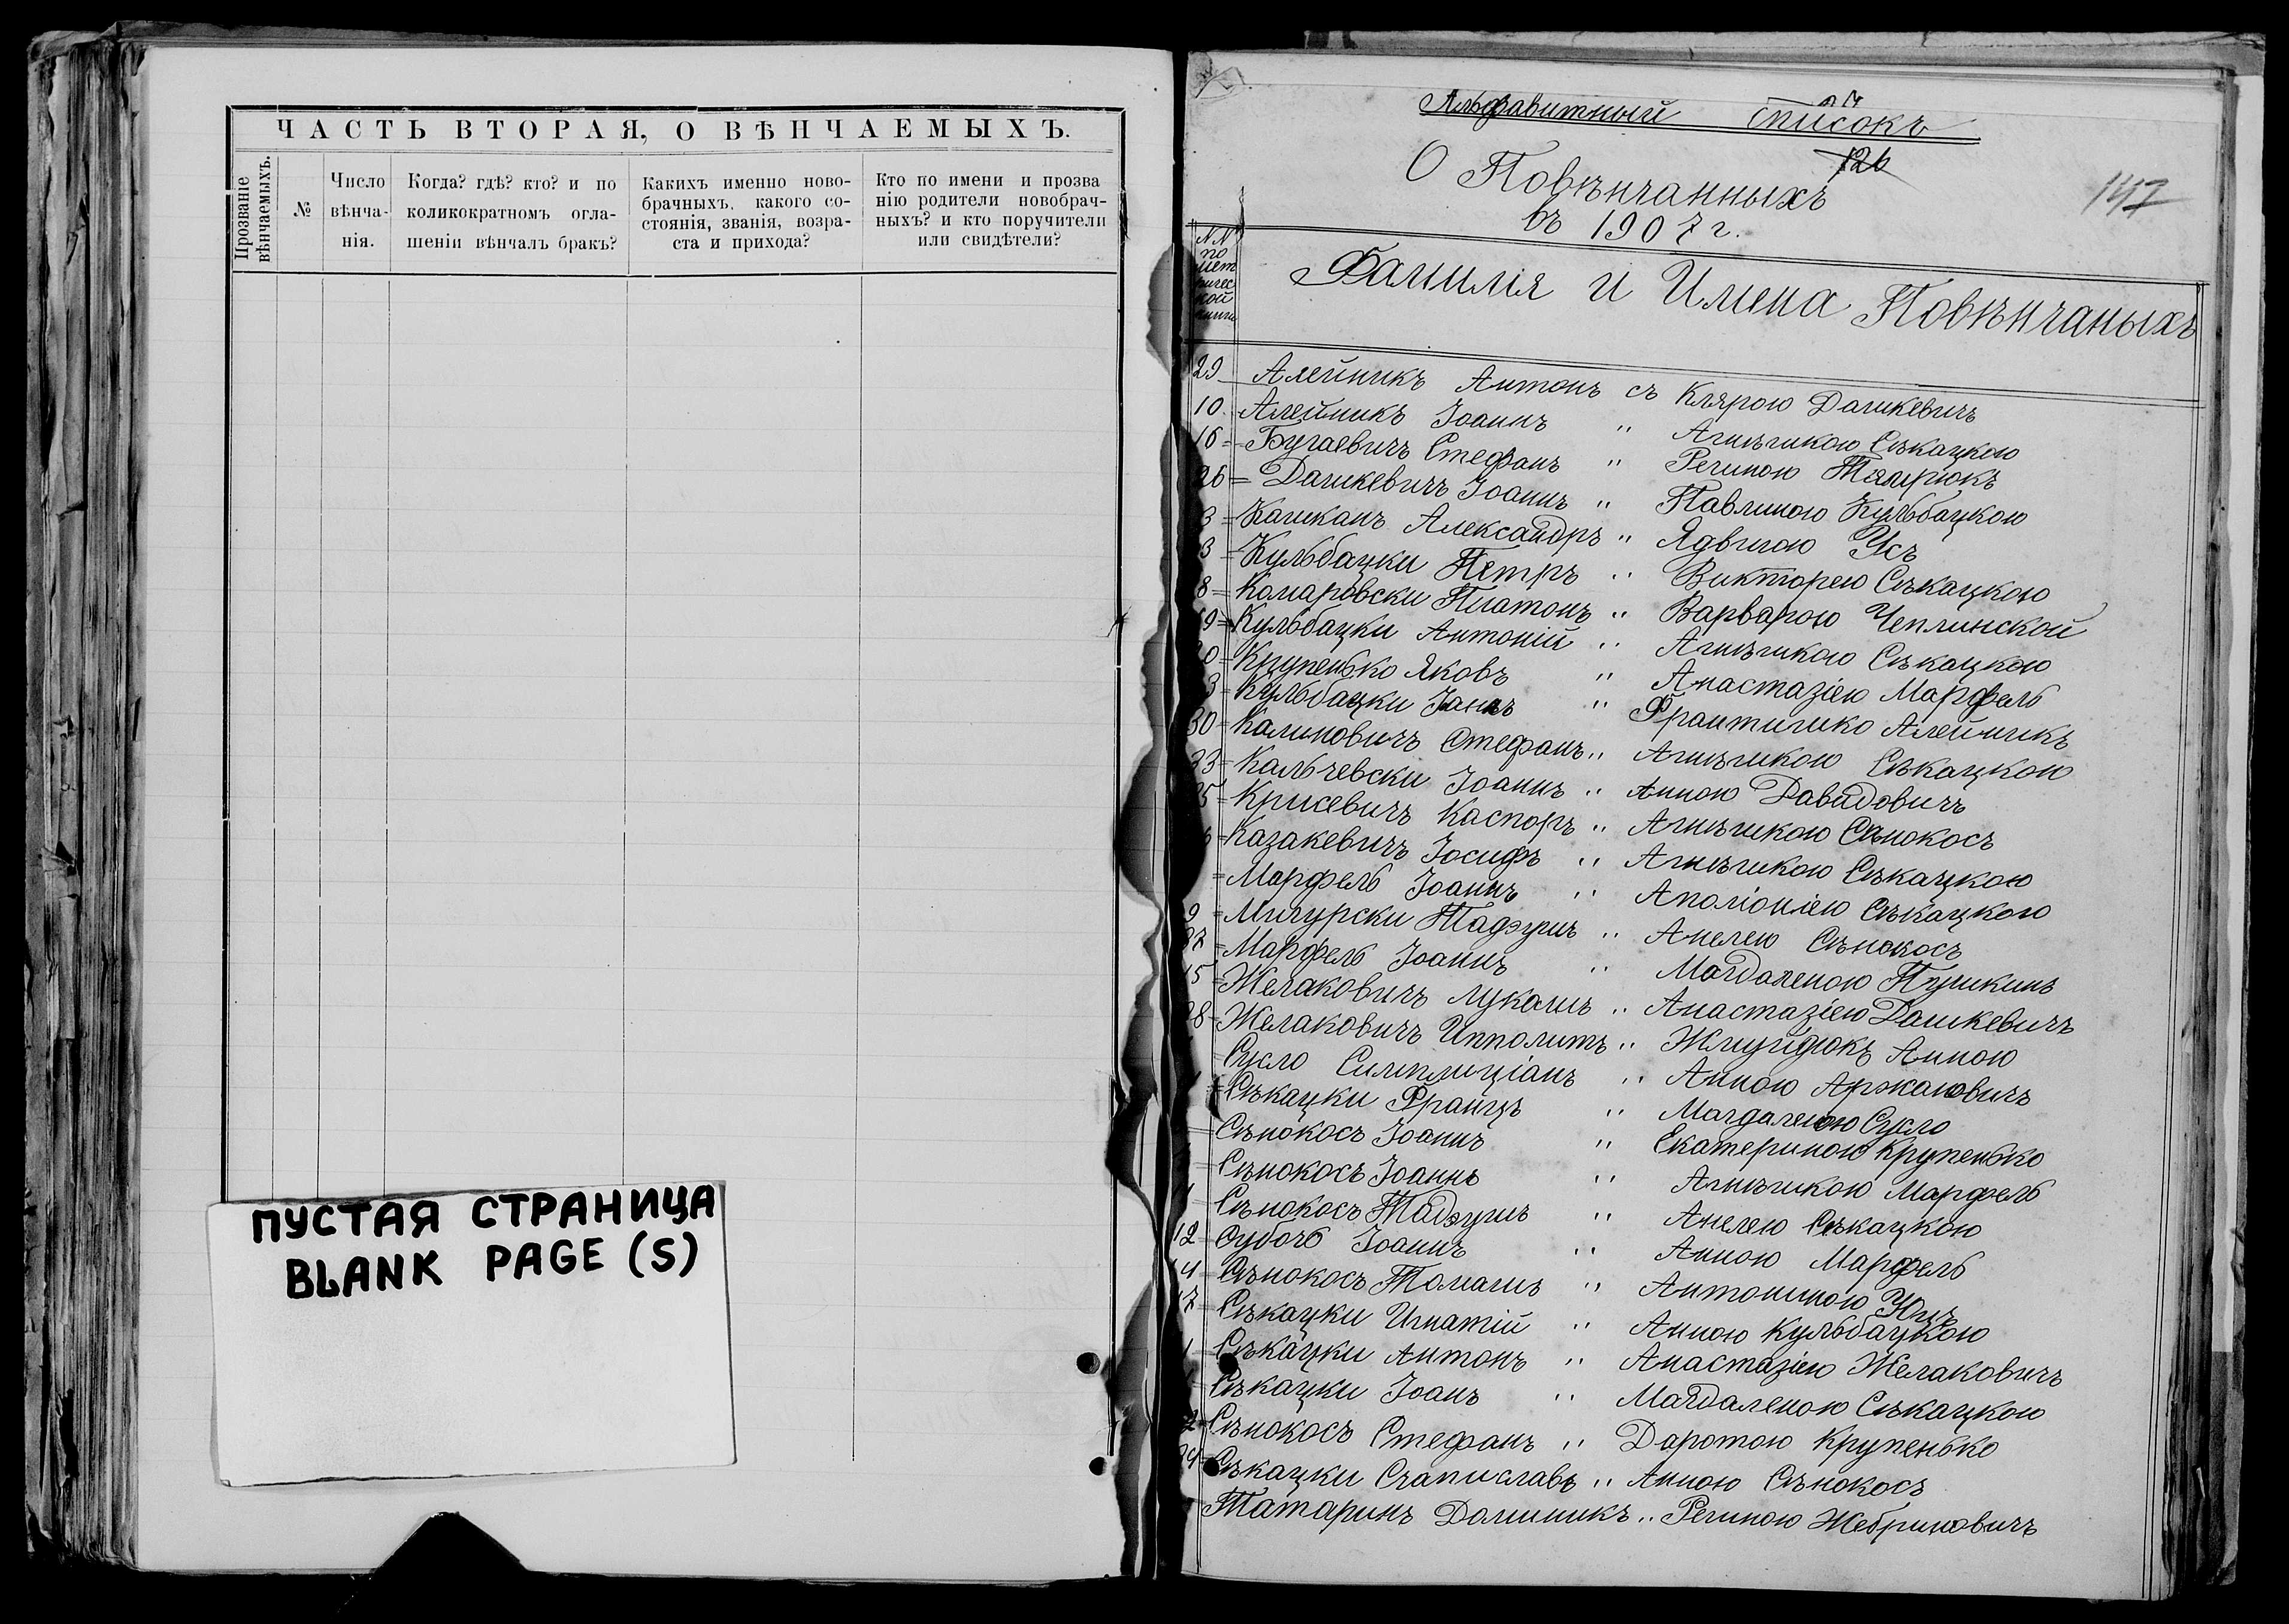 ЧАСТЬ ВТОРАЯ, О ВѢНЧАЕМЫХЪ.
Прозваніе вѣнчаемыхъ.
№
Число вѣнча-
нія.
Когда? гдѣ? кто? и по
коликократномъ огла-
шеніи вѣнчалъ бракъ?
Какихъ именно ново-
брачныхъ, какого со-
стоянія, званія, возра-
ста и прихода?
Кто по имени и прозва
нію родители новобрач-
ныхъ? и кто поручители
или свидѣтели?
ПУСТАЯ СТРАНИЦА
BLANK PAGE (S)
Альфавитный Списокъ
126
О Повѣнчанныхъ
147
въ 1907 г.
NN
по
мет
ричес
кой
книги
Фамилія и Имена Повѣнчаныхъ
29 Алейникъ Антонъ съ Клярою Дашкевичъ
10 Алейникъ Іоаннъ " Агнѣшкою Сѣкацкою
16 = Бугаевичъ Стефанъ " Региною Тямрюкъ
26 = Дашкевичъ Іоаннъ " Павлиною Кульбацкою
3 = Кашканъ Александръ " Ядвигою Усъ
3 = Кульбацки Петръ " Викторею Сѣкацкою
8 = Комаровски Платонъ " Варварою Чеплинской
19 = Кульбацки Антоній " Агнѣшкою Сѣкацкою
20 = Крупенько Яковъ " Анастазіею Марфель
3 = Кульбацки Іанъ " Франтишко Алейникъ
30 = Калиновичъ Стефанъ " Агнѣшкою Сѣкацкою
33 = Кальчевски Іоаннъ " Анною Давидовичъ
35 = Крисевичъ Каспоръ " Агнѣшкою Сѣнокосъ
6 = Казакевичъ Іосифъ " Агнѣшкою Сѣкацкою
= Марфель Іоаннъ " Аполіоніею Сѣкацкою
9 = Мичурски Тадэушъ " Анелею Сѣнокосъ
37 = Марфель Іоаннъ " Магдаленою Пушкинъ
15 = Желаковичъ Лукашъ " Анастазіею Дашкевичъ
28 = Желаковичъ Ипполитъ " Жмуйдокъ Анною
Сусло Симплиціанъ " Анною Аржановичъ
= Сѣкацки Францъ " Магдаленою Сусло
= Сѣнокосъ Іоаннъ " Екатериною Крупенько
= Сѣнокосъ Іоаннъ " Агнѣшкою Марфель
Сѣнокосъ Тадэушъ " Анелею Сѣкацкою
12 = Субочь Іоаннъ " Анною Марфель
14 = Сѣнокосъ Томашъ " Антониною Юнъ
17 = Сѣкацки Игнатій " Анною Кульбацкою
1 Сѣкацки Антонъ " Анастазіею Желаковичъ
= Сѣкацки Іоанъ " Магдаленою Сѣкацкою
2 = Сѣнокосъ Стефанъ " Даротою Крупенько
24 = Сѣкацки Станиславъ " Анною Сѣнокосъ
Татаринъ Доминикъ " Региною Жебриновичъ